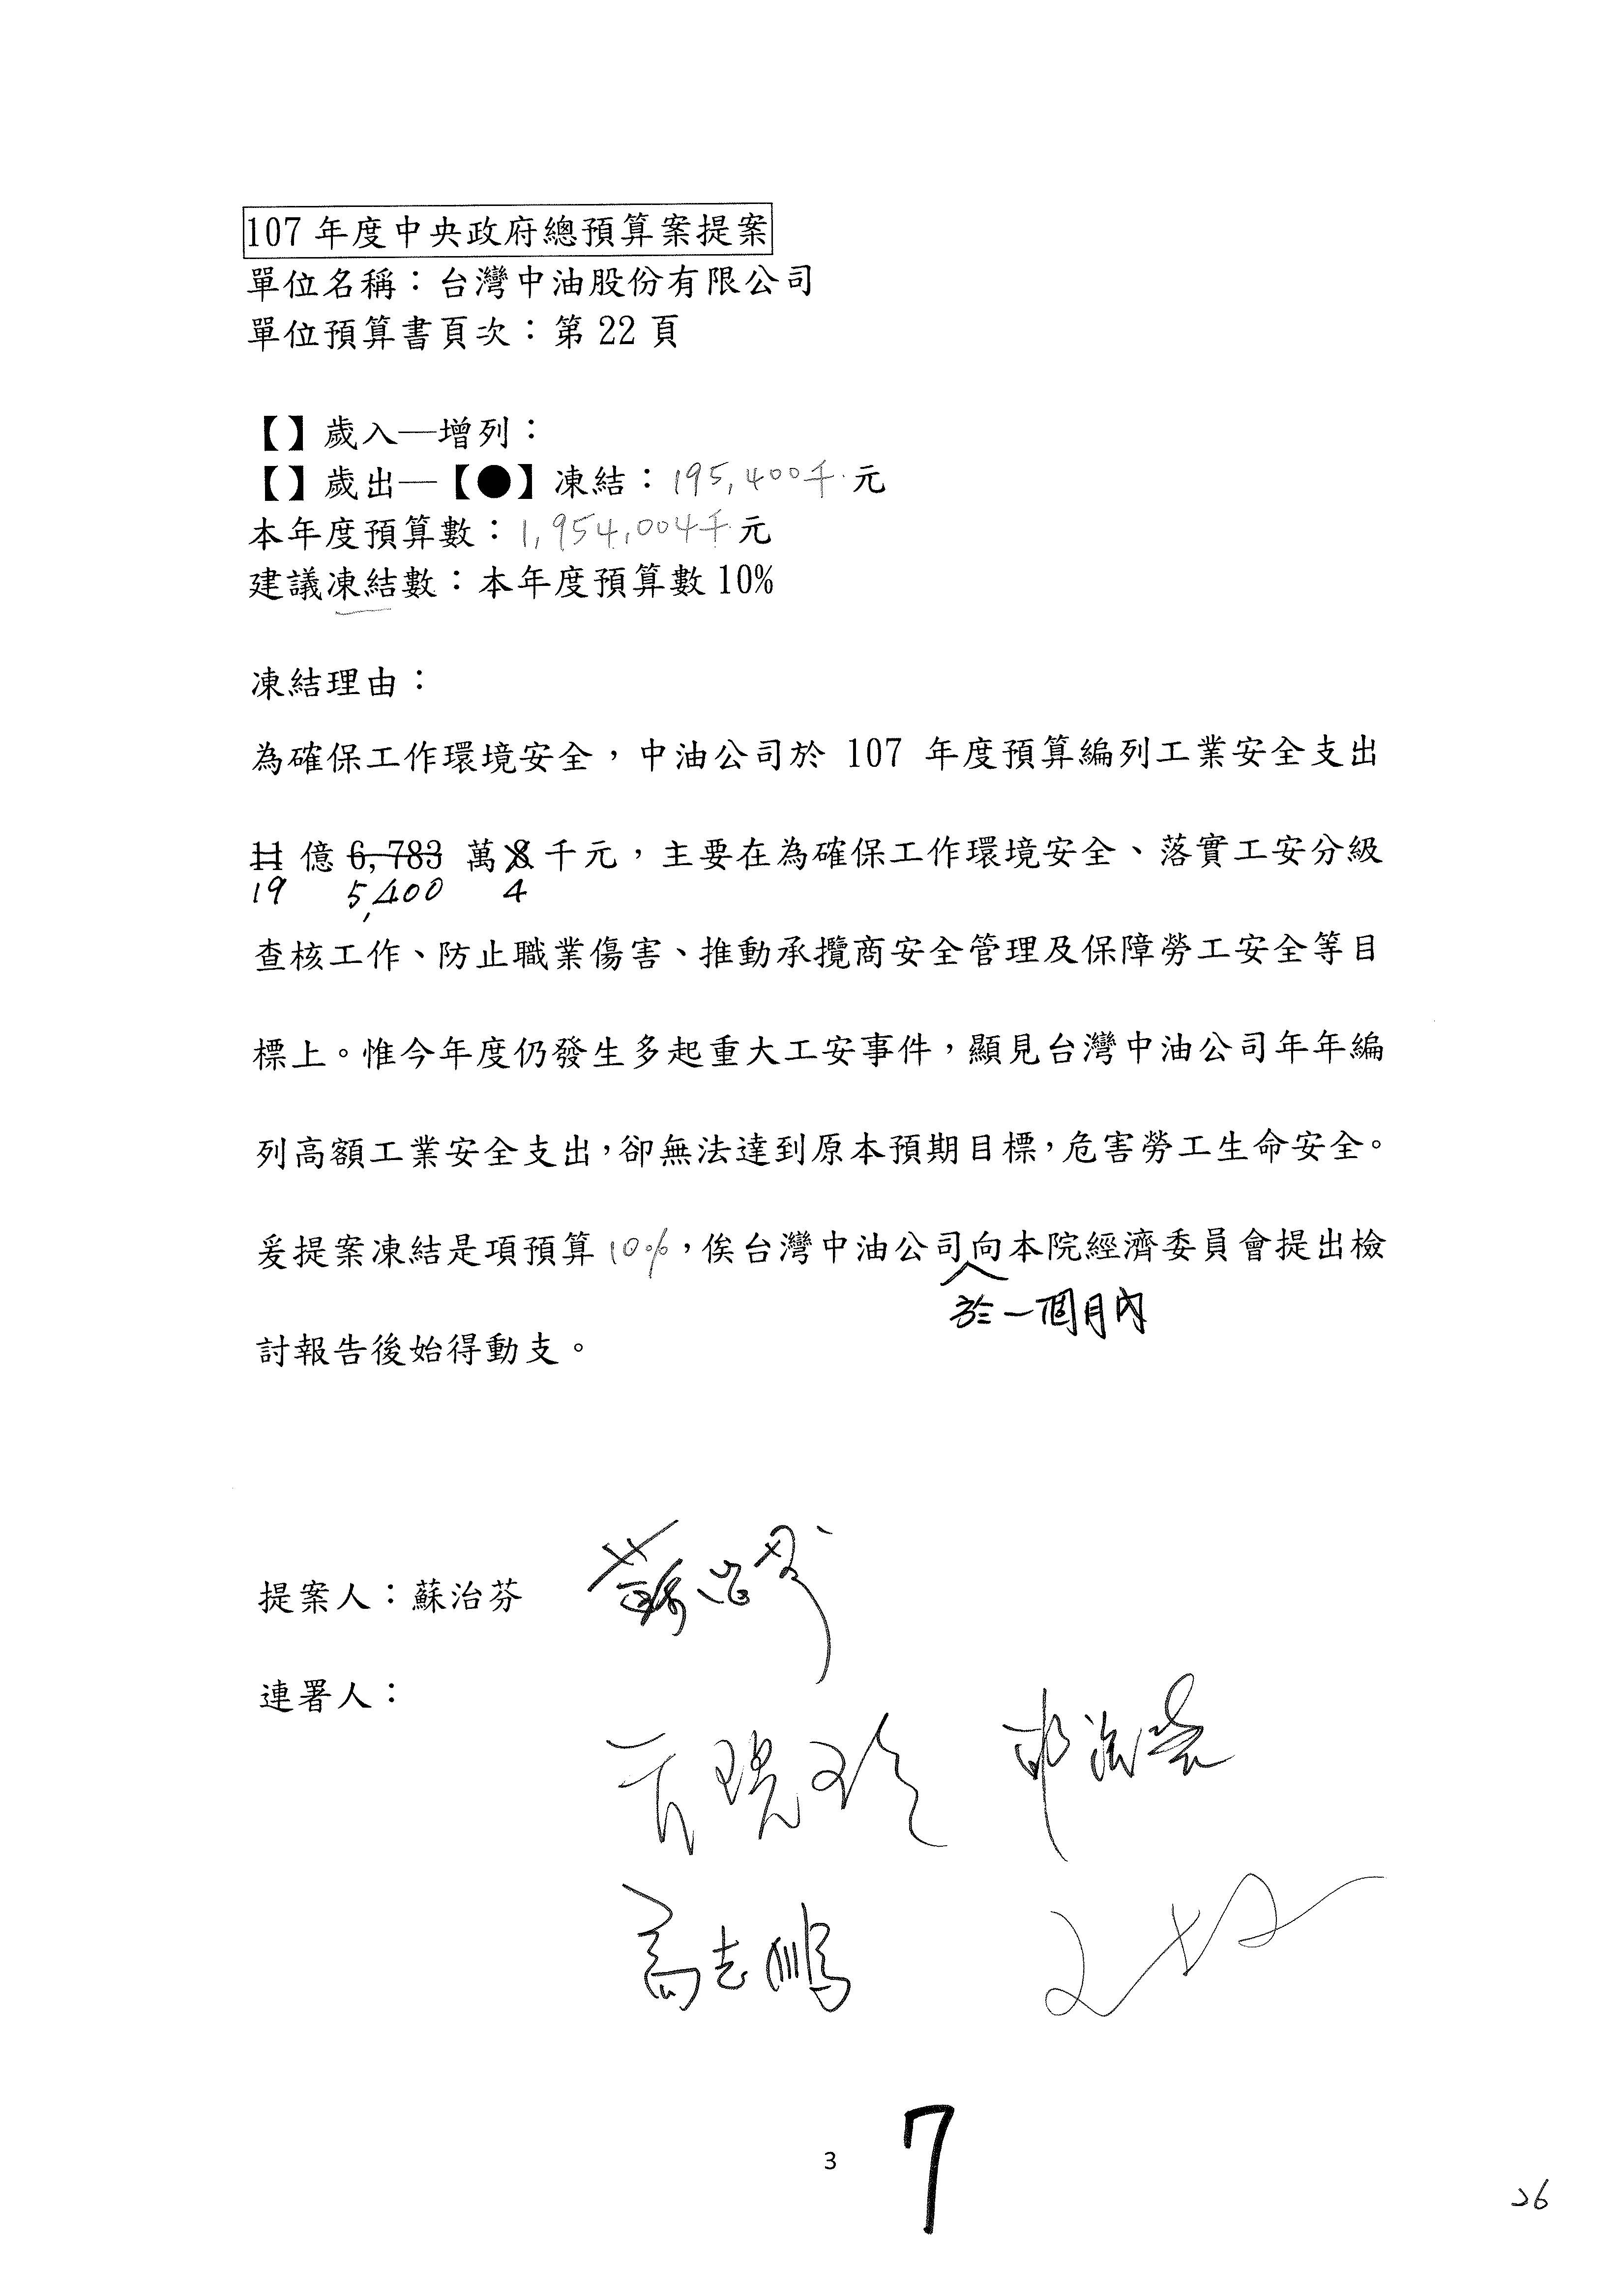 107 年度中央政府總預算案提案
單位名稱：台灣中油股份有限公司
單位預算書頁次：第 22 頁
【】歲入—增列：
【】歲出—【●】凍結：195,400千元
本年度預算數：1,954,004千元
建議凍結數：本年度預算數 10%
凍結理由：
為確保工作環境安全，中油公司於 107 年度預算編列工業安全支出
11 億 6,783 萬 8 千元，主要在為確保工作環境安全、落實工安分級
19 5,400 4
查核工作、防止職業傷害、推動承攬商安全管理及保障勞工安全等目
標上。惟今年度仍發生多起重大工安事件，顯見台灣中油公司年年編
列高額工業安全支出，卻無法達到原本預期目標，危害勞工生命安全。
爰提案凍結是項預算10%，俟台灣中油公司向本院經濟委員會提出檢
於一個月內
討報告後始得動支。
提案人：蘇治芬 蘇治芬
連署人：
高志鵬
3
7
26